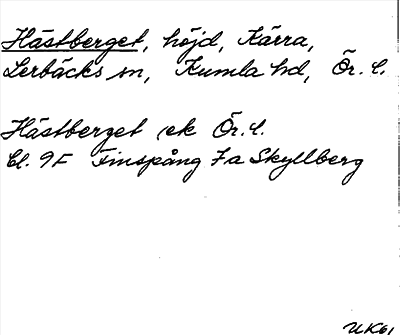 Hästberget, höjd, Kärra,
Lerbäcks sn, Kumla hd, Ör. l.
Hästberget ek Ör. l.
Bl. 9F Finspång 7a Skyllberg
UK61